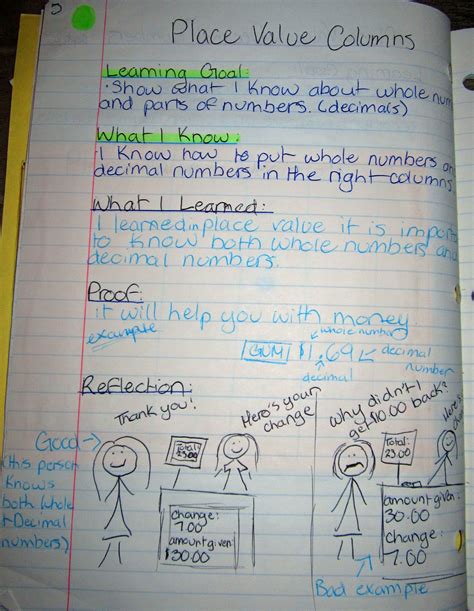 Place Value Columns
Learning Goal:
· Show what I Know about whole num
and parts of numbers. (decimals)
What I Know:
I Know how to put whole numbers an
decimal numbers in the right columns
What I Learned:
I learned in place value it is impor
to know both whole numbers and
decimal numbers.
Proof:
it will help you with money.
example
whole number
GUM $1.69 decimal
number
decimal
Reflection:
Thank you!
Here's your
change
why didn't I
get $10.00 back?
Here's
Good →
(this person
Knows
both whole
+ Decimal
numbers)
Total:
change:
7.00
amount given:
$30.00
Total:
23.00
amount given:
30.00
change:
7.00
Bad example